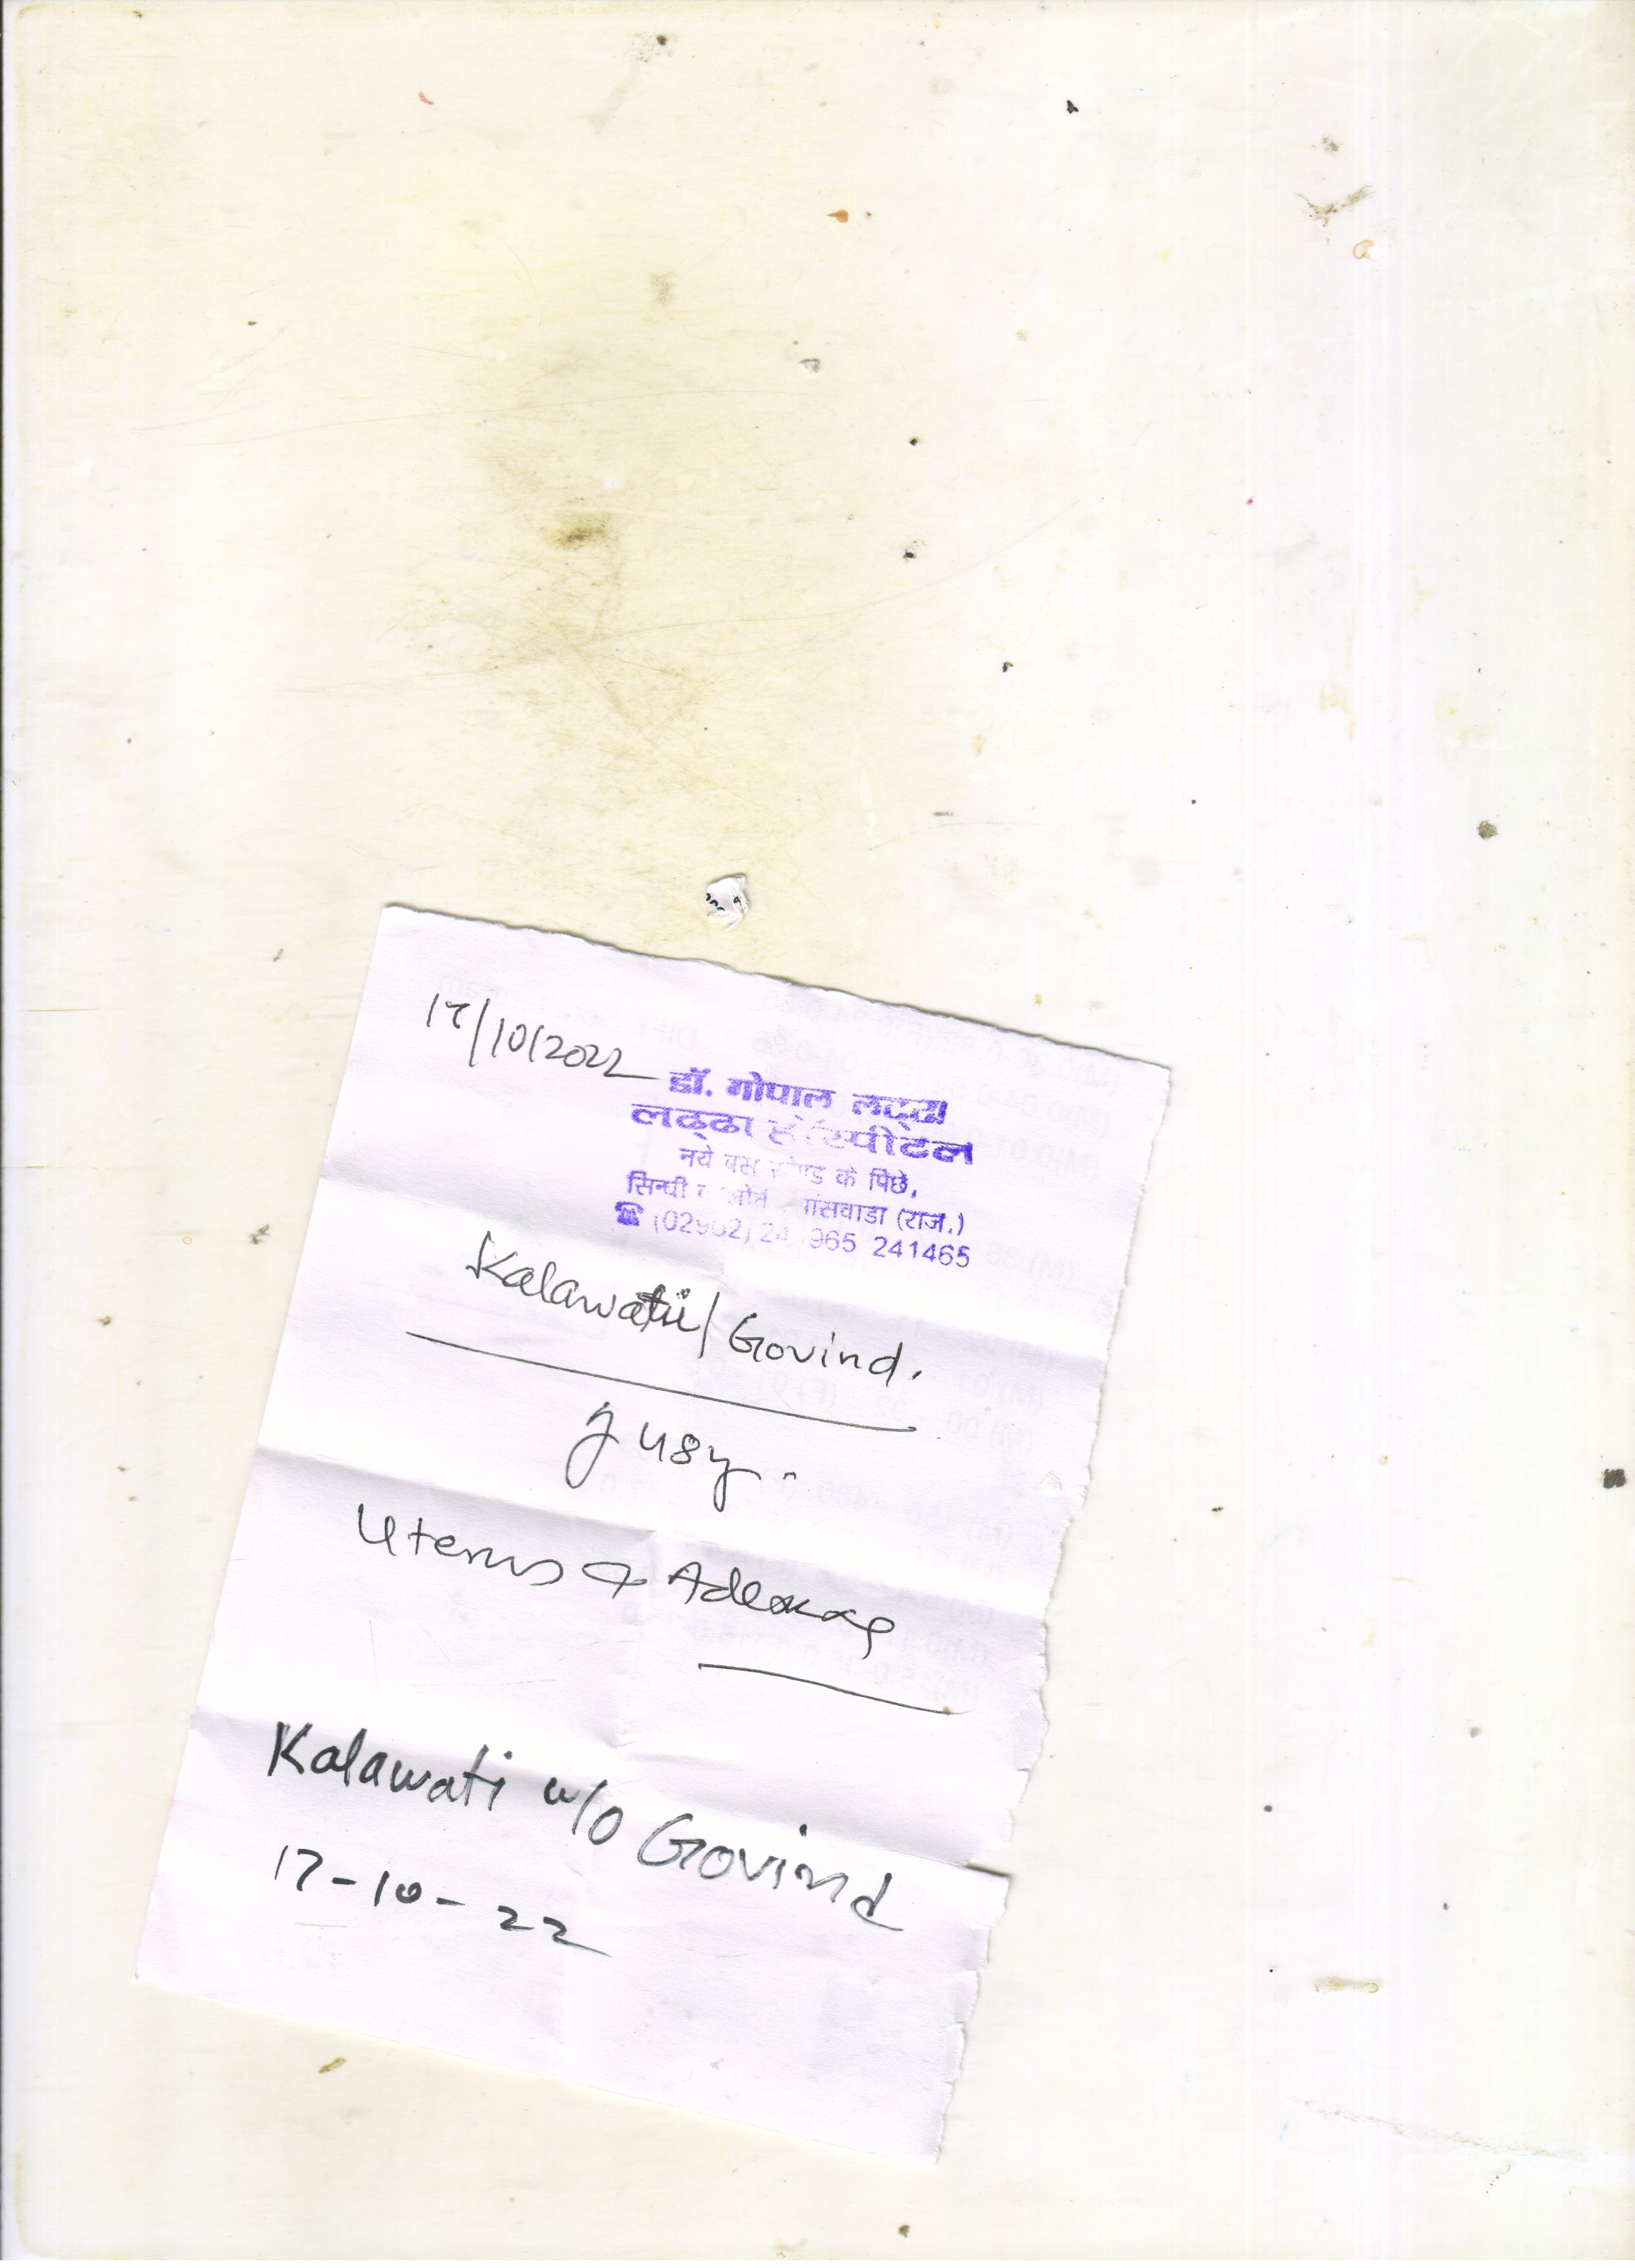 17/10/2022
डॉ. गोपाल लढ्ढा
लढ्ढा हॉस्पीटल
नये बस स्टेण्ड के पिछे,
सिन्धी बांसवाडा (राज.)
☎ (02962) 965 241465
Kalawati / Govind.
48y.
Uterus & Adenexae
Kalawati w/o Govind
17-10-22